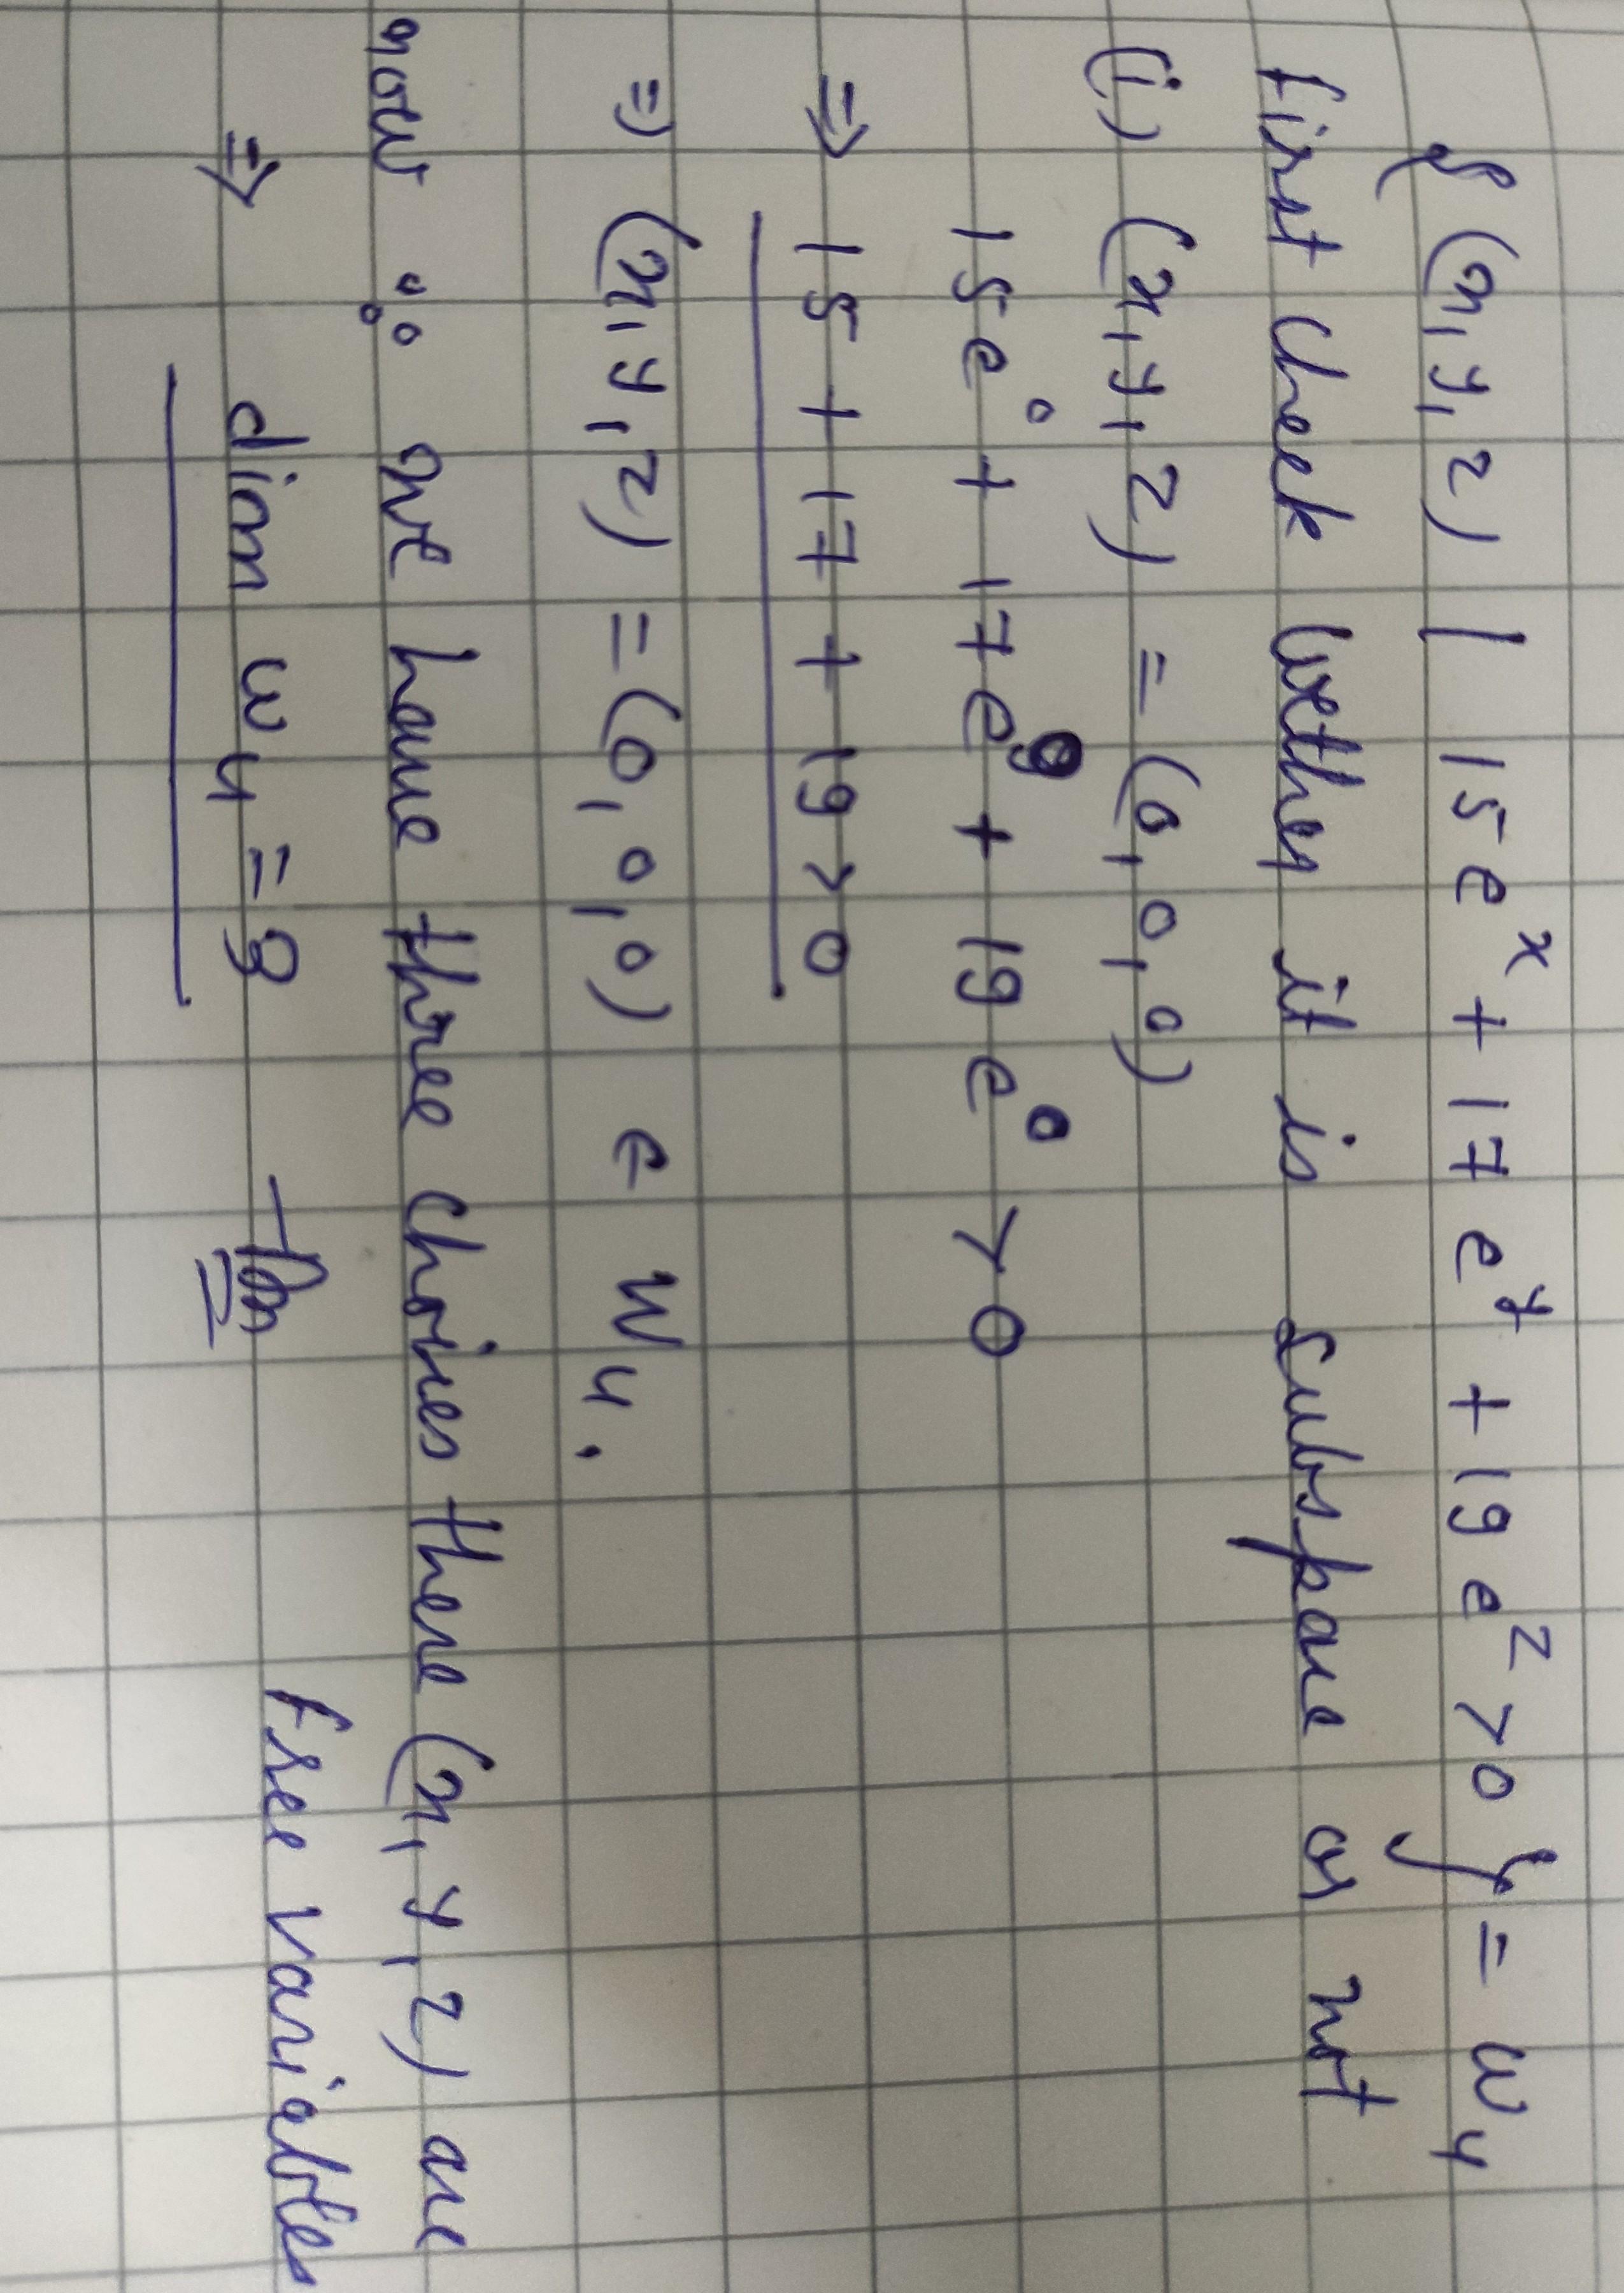 {(x,y,z) | 15e^x + 17e^y + 19e^z > 0} = W4
First check wether it is subspace or not
(i) (x,y,z) = (0,0,0)
15e^0 + 17e^0 + 19e^0 > 0
⇒ 15 + 17 + 19 > 0
⇒ (x,y,z) = (0,0,0) ∈ W4.
now ∵ we have three chories there (x,y,z) are
free variables
⇒ dim W4 = 3